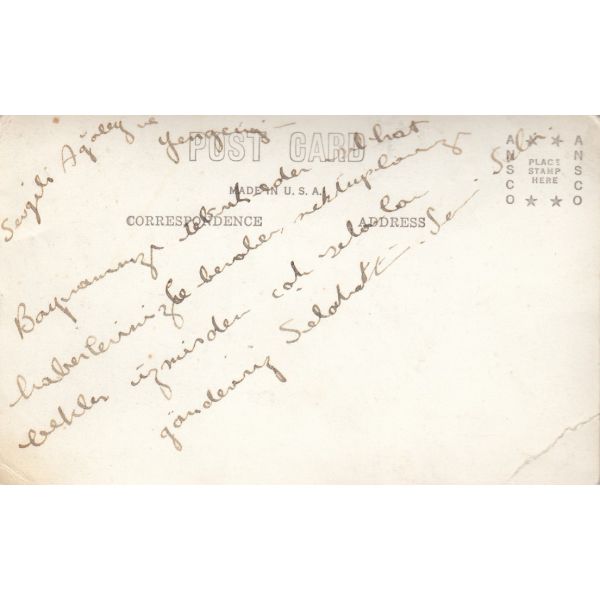 POST CARD
MADE IN U.S.A.
CORRESPONDENCE ADDRESS
ANSCO
PLACE
STAMP
HERE
ANSCO
Sevgili Ağabey ve yengeciğ
Bayramınızı tebrik eder sıhhat
haberlerinizle beraber mektuplarınızı
bekler
çok selamlar
göndeririz